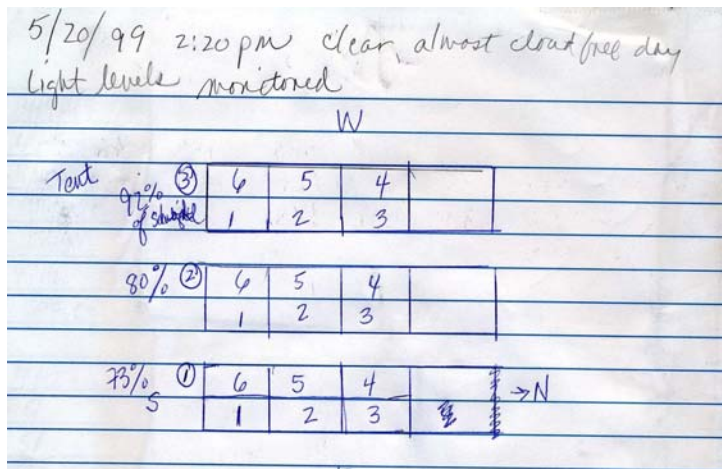 5/20/99 2:20 pm clear, almost cloud free day
light levels monitored
W
Tent 92% ③ 6 5 4
of 1 2 3
80% ② 6 5 4
1 2 3
73% ① 6 5 4 →N
S 1 2 3